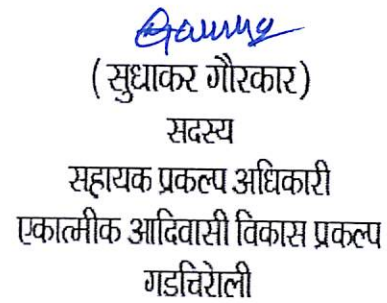 (सुधाकर गौरकार)
सदस्य
सहायक प्रकल्प अधिकारी
एकात्मीक आदिवासी विकास प्रकल्प
गडचिरोली